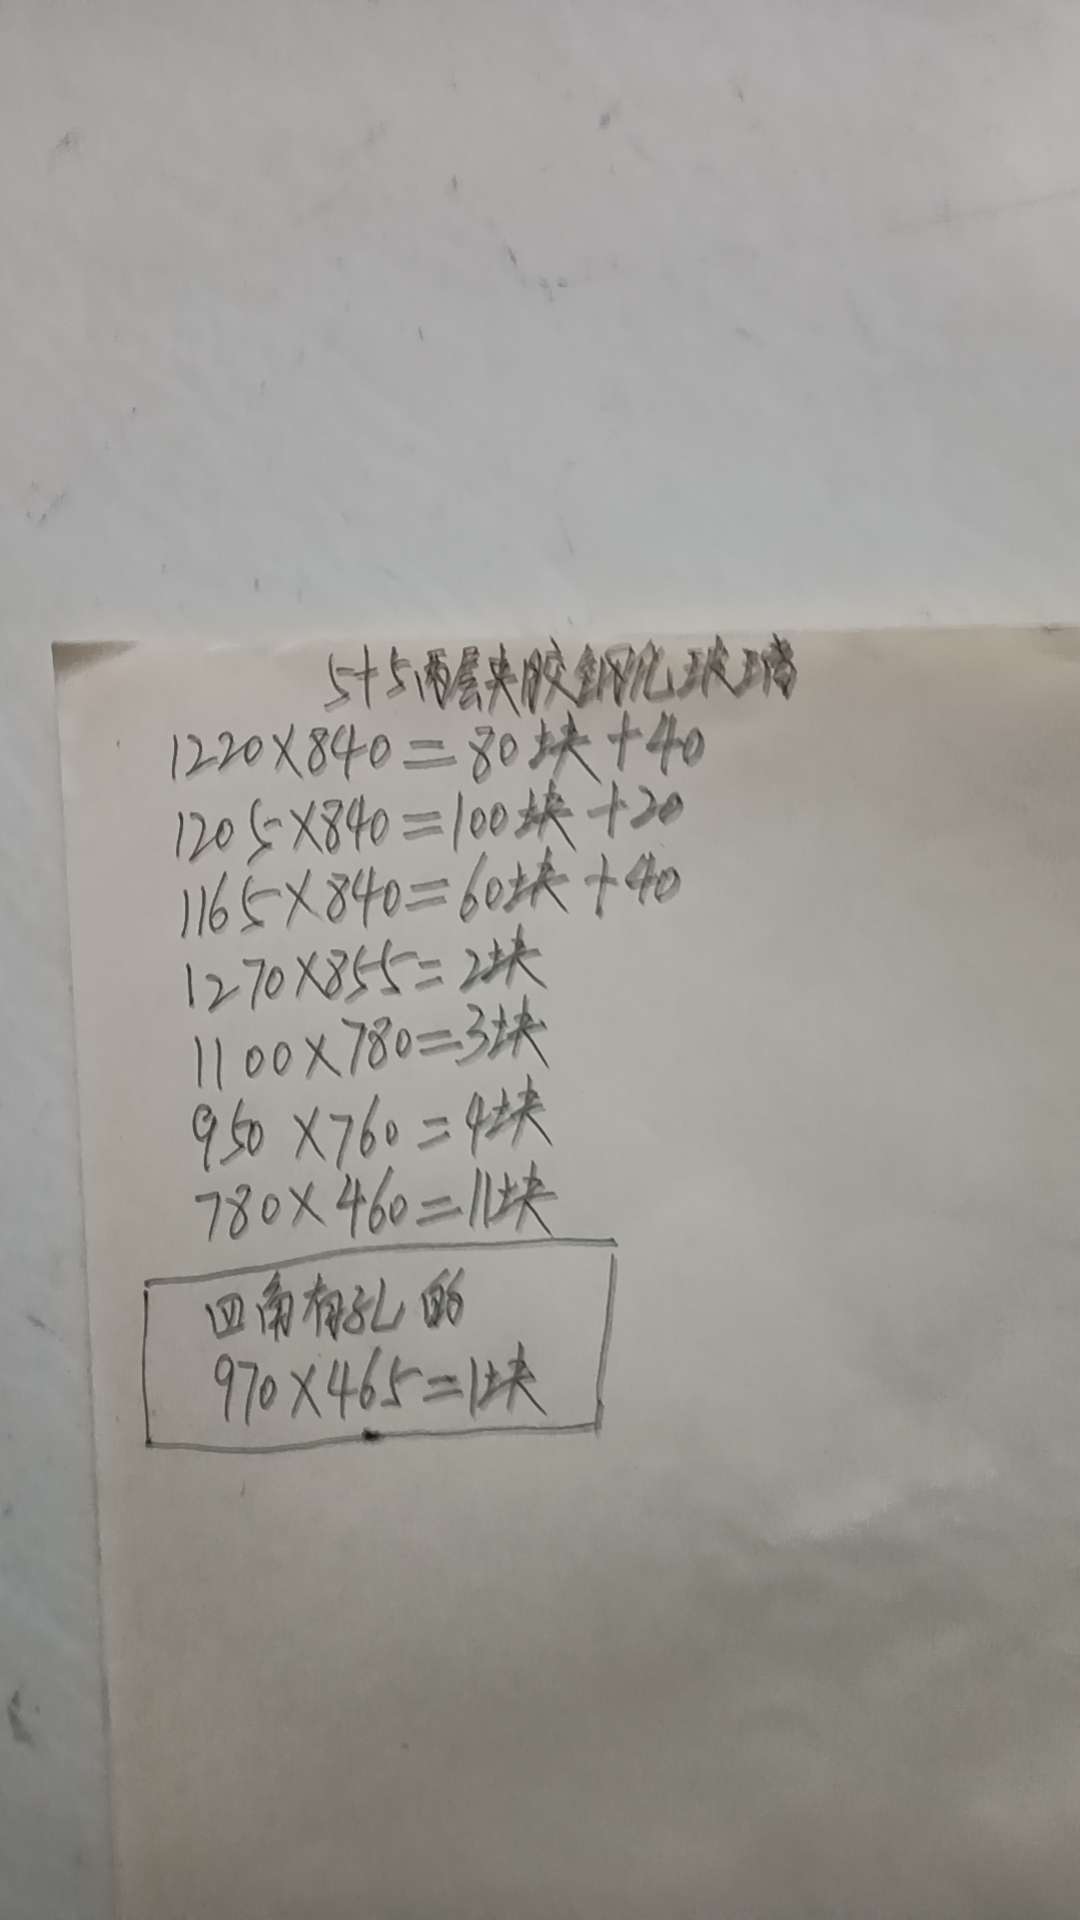 5+5两层夹胶钢化玻璃
1220×840=80块+40
1205×840=100块+20
1165×840=60块+40
1270×855=2块
1100×780=3块
950×760=4块
780×460=11块
四角有孔的
970×465=1块